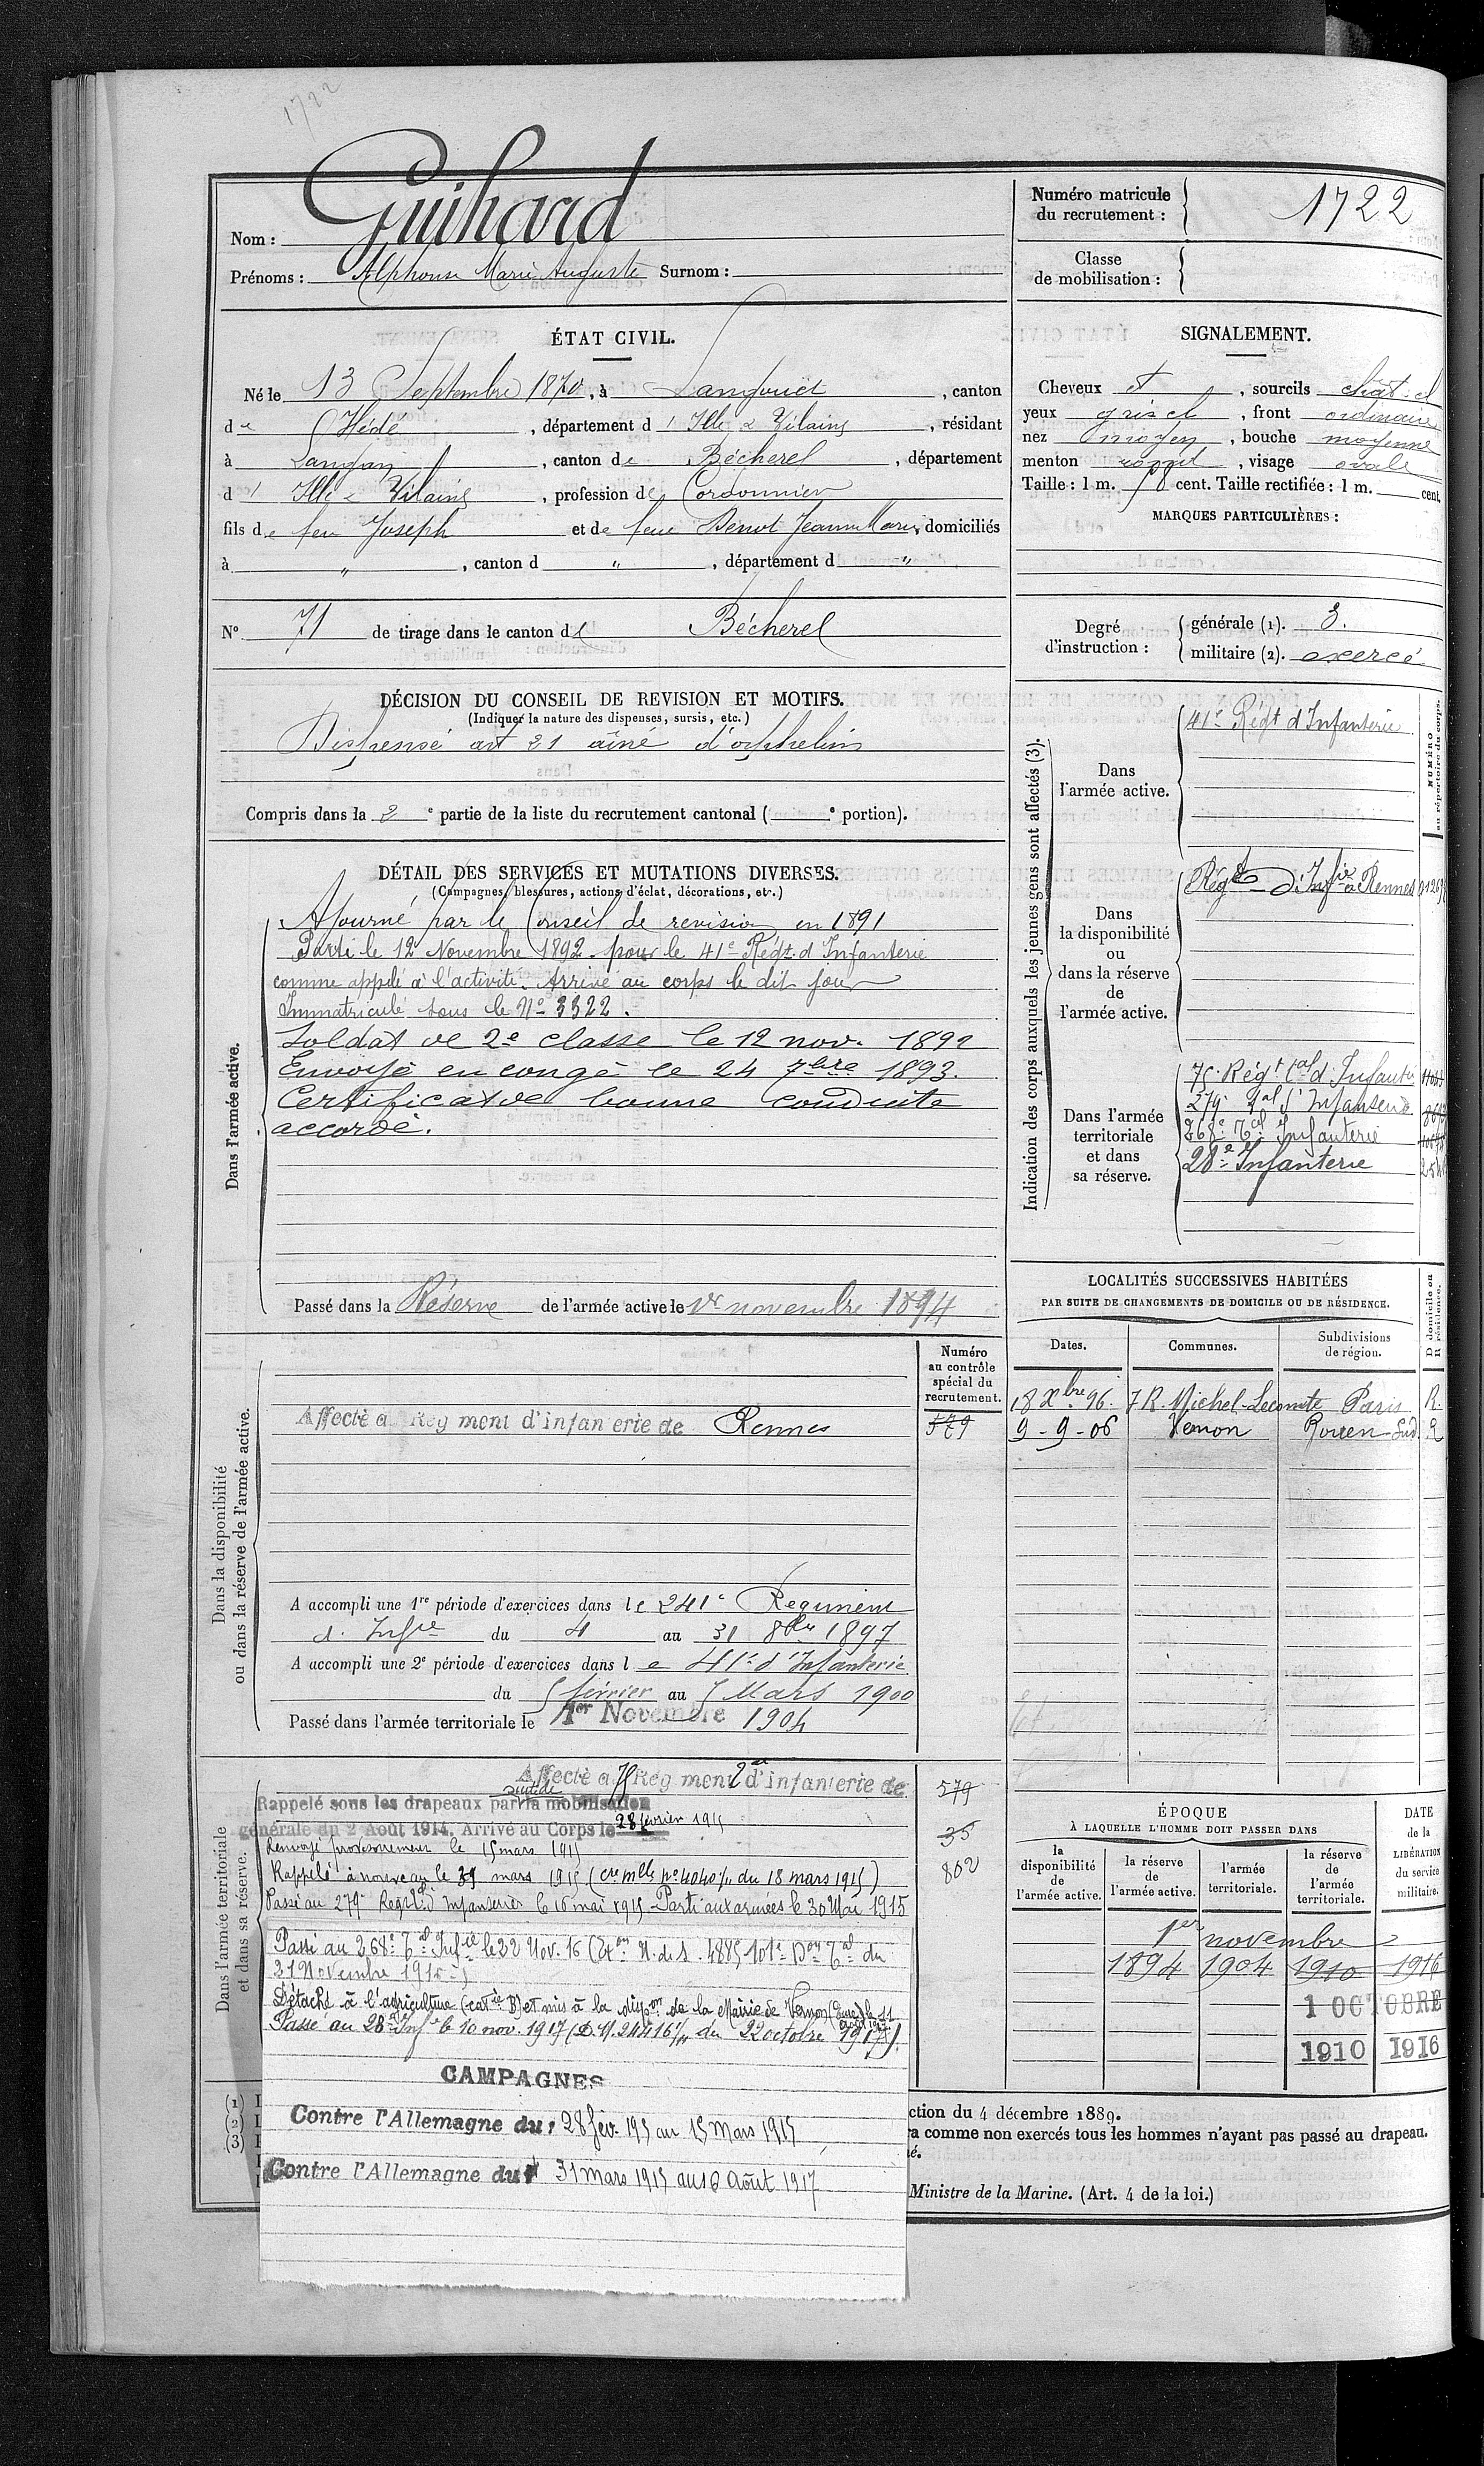 1722
Nom : Guihard
Prénoms : Alphonse Marie Auguste Surnom :
Numéro matricule du recrutement : 1722
Classe de mobilisation :
ÉTAT CIVIL.
Né le 13 Septembre 1870, à Langouët, canton
de Hédé, département d'Ille & Vilaine, résidant
à Langan, canton de Bécherel, département
d'Ille & Vilaine, profession de Cordonnier
fils de feu Joseph et de feue Jeanne Marie, domiciliés
à " , canton d " , département d "
N° 71 de tirage dans le canton de Bécherel
SIGNALEMENT.
Cheveux et , sourcils chat. cl
yeux gris cl , front ordinaire
nez moyen , bouche moyenne
menton rond , visage ovale
Taille : 1 m. cent. Taille rectifiée : 1 m. cent.
MARQUES PARTICULIÈRES :
Degré d'instruction :
générale (1). 3.
militaire (2). exercé
DÉCISION DU CONSEIL DE REVISION ET MOTIFS.
(Indiquer la nature des dispenses, sursis, etc.)
Dispensé art 21 aîné d'orphelins
Compris dans la 2e partie de la liste du recrutement cantonal ( e portion).
DÉTAIL DES SERVICES ET MUTATIONS DIVERSES.
(Campagnes, blessures, actions d'éclat, décorations, etc.)
Dans l'armée active.
Ajourné par le Conseil de revision en 1891
Parti le 12 Novembre 1892 pour le 41e Régt. d'Infanterie
comme appelé à l'activité. Arrivé au corps le dit jour
Immatriculé sous le No 3322.
Soldat de 2e classe le 12 nov. 1892
Envoyé en congé le 24 7bre 1893.
Certificat de bonne conduite
accordé.
Passé dans la Réserve de l'armée active le 1er novembre 1894
Indication des corps auxquels les jeunes gens sont affectés (3).
NUMÉRO au répertoire du corps.
Dans l'armée active.
41e Régt d'Infanterie
Dans la disponibilité ou dans la réserve de l'armée active.
Régt d'Infie à Rennes
Dans l'armée territoriale et dans sa réserve.
75e Régt tal d'Infanterie
279e tal d'Infanterie
268e Tal Infanterie
28e Infanterie
LOCALITÉS SUCCESSIVES HABITÉES
PAR SUITE DE CHANGEMENTS DE DOMICILE OU DE RÉSIDENCE.
Dates. Communes. Subdivisions de région. D domicile ou R résidence.
18 Xbre 96. 7 R. Michel-Lecomte Paris R.
9-9-06 Vernon Rouen-Sud. R
Dans la disponibilité ou dans la réserve de l'armée active.
Numéro au contrôle spécial du recrutement.
Affecté au Régiment d'infanterie de Rennes 579
A accompli une 1re période d'exercices dans le 241e Régiment
d'Infie du 4 au 31 8bre 1897
A accompli une 2e période d'exercices dans le 41e d'Infanterie
du 5 février au 5 Mars 1900
Passé dans l'armée territoriale le 1er Novembre 1904
Dans l'armée territoriale et dans sa réserve.
Affecté au 75 Régiment tal d'infanterie de 579
suite de
Rappelé sous les drapeaux par la mobilisation
générale du 2 Août 1914. Arrivé au Corps le 28 février 1915 35
Renvoyé provisoirement le 15 mars 1915
Rappelé à nouveau le 31 mars 1915 (cre mlle no 4040 1/11 du 18 mars 1915) 802
Passé au 279e Régt tal d'Infanterie le 16 mai 1915 Parti aux armées le 30 Mai 1915
Passé au 268e Tal Infie le 22 Nov. 16 (Exon N. de S. 4885 101e Don Tal du
21 Novembre 1916)
Détaché à l'agriculture (catie B) et mis à la dispon de la Mairie de Vernon (Eure) le 11 août 1917.
Passé au 28e Infie le 10 nov. 1917 (D.M. 24416 1/11 du 22 octobre 1917).
CAMPAGNES
Contre l'Allemagne du 28 fév. 1915 au 15 Mars 1915
Contre l'Allemagne du 31 mars 1915 au 10 Août 1917
ÉPOQUE
À LAQUELLE L'HOMME DOIT PASSER DANS
la disponibilité de l'armée active.
la réserve de l'armée active.
l'armée territoriale.
la réserve de l'armée territoriale.
DATE de la LIBÉRATION du service militaire.
1er novembre
1894 1904 1910 1916
1 OCTOBRE
1910 1916
(1)
(2)
(3)
ction du 4 décembre 1889.
ra comme non exercés tous les hommes n'ayant pas passé au drapeau.
é.
Ministre de la Marine. (Art. 4 de la loi.)